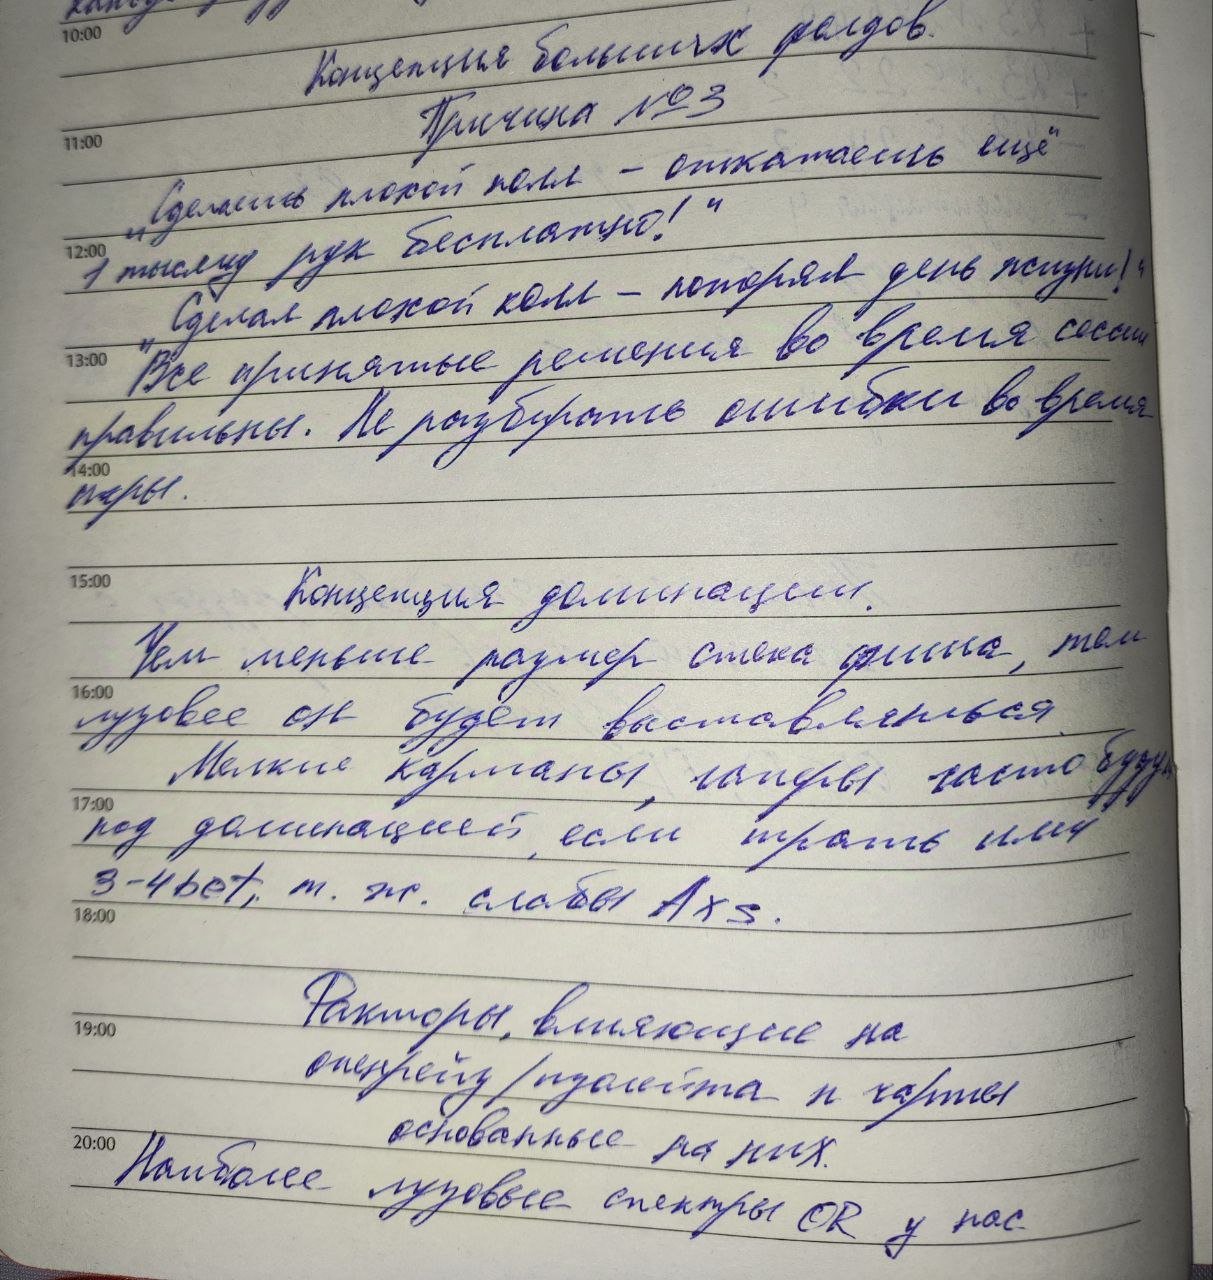 10:00
Концепция больших фолдов.
Причина №3
11:00
„Сделаешь плохой колл – откатаешь ещё
12:00
1 тысячу рук бесплатно!"
„Сделал плохой колл – потерял день жизни!"
13:00
Все принятые решения во время сессии
правильны. Не разбирать ошибки во время
14:00
игры.
15:00
Концепция доминации.
Чем меньше размер стека фиша, тем
16:00
лузовее он будет выставляться
Мелкие карманы, гапфы часто будут
17:00
под доминацией, если играть ими
3-4bet, т. ж. слабы Axs.
18:00
Факторы, влияющие на
19:00
опенрейз/изолейта и чарты
основанные на них.
20:00
Наиболее лузовые спектры OR у нас